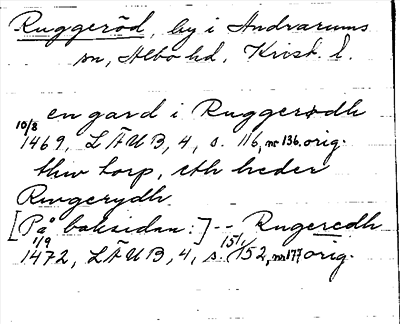 Ruggeröd, by i Andrarums
sn, Albo hd, Krist. l.
en gard i Ruggerødh
10/8 1469, LÄUB, 4, s. 116, nr 136. orig.
thw torp, eth heder
Rwgerydh.
[På baksidan:] -- Rugeredh
1/9 1472, LÄUB, 4, s. 151, 152, nr 177 orig.